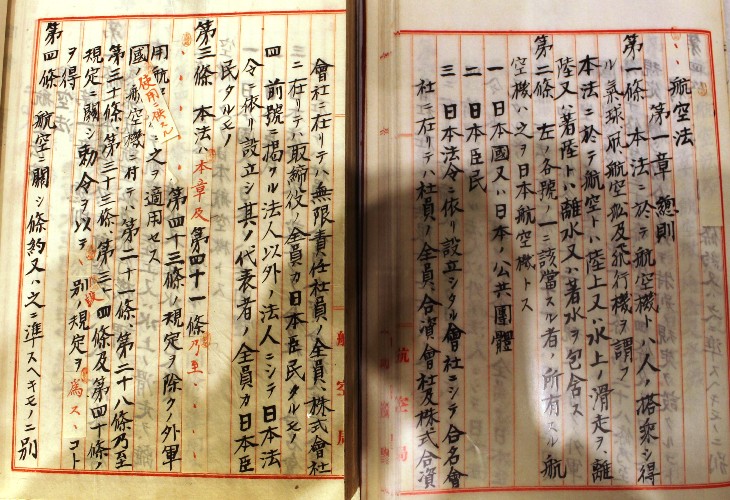 航空法
第一章 總則
第一條 本法ニ於テ航空機トハ人ノ搭乘シ得
ル氣球、航空船及飛行機ヲ謂フ
本法ニ於テ航空トハ陸上又ハ水上ノ滑走ヲ、離
陸又ハ著陸トハ離水又ハ著水ヲ包含ス
第二條 左ノ各號ノ一ニ該當スル者ノ所有スル航
空機ハ之ヲ日本航空機トス
一 日本國又ハ日本ノ公共團體
二 日本臣民
三 日本法令ニ依リ設立シタル會社ニシテ合名會
社ニ在リテハ社員ノ全員、合資會社及株式合資
會社ニ在リテハ無限責任社員ノ全員、株式會社
ニ在リテハ取締役ノ全員カ日本臣民タルモノ
四 前號ニ揭クル法人以外ノ法人ニシテ日本法
令ニ依リ設立シ其ノ代表者ノ全員カ日本臣
民タルモノ
第三條 本法ハ本章及第四十一條乃至
第四十三條ノ規定ヲ除クノ外軍
用航
使用ニ供スル
之ヲ適用セス
國ノ航空機ニ付テハ第二十一條、第二十八條乃至
第三十條、第三十三條、第三十四條及第四十條ノ
規定ニ關シ勅令ヲ以テ別段ノ規定ヲ爲スコト
ヲ得
第四條 航空ニ關シ條約又ハ之ニ準スヘキモノニ別
航空局
航空局